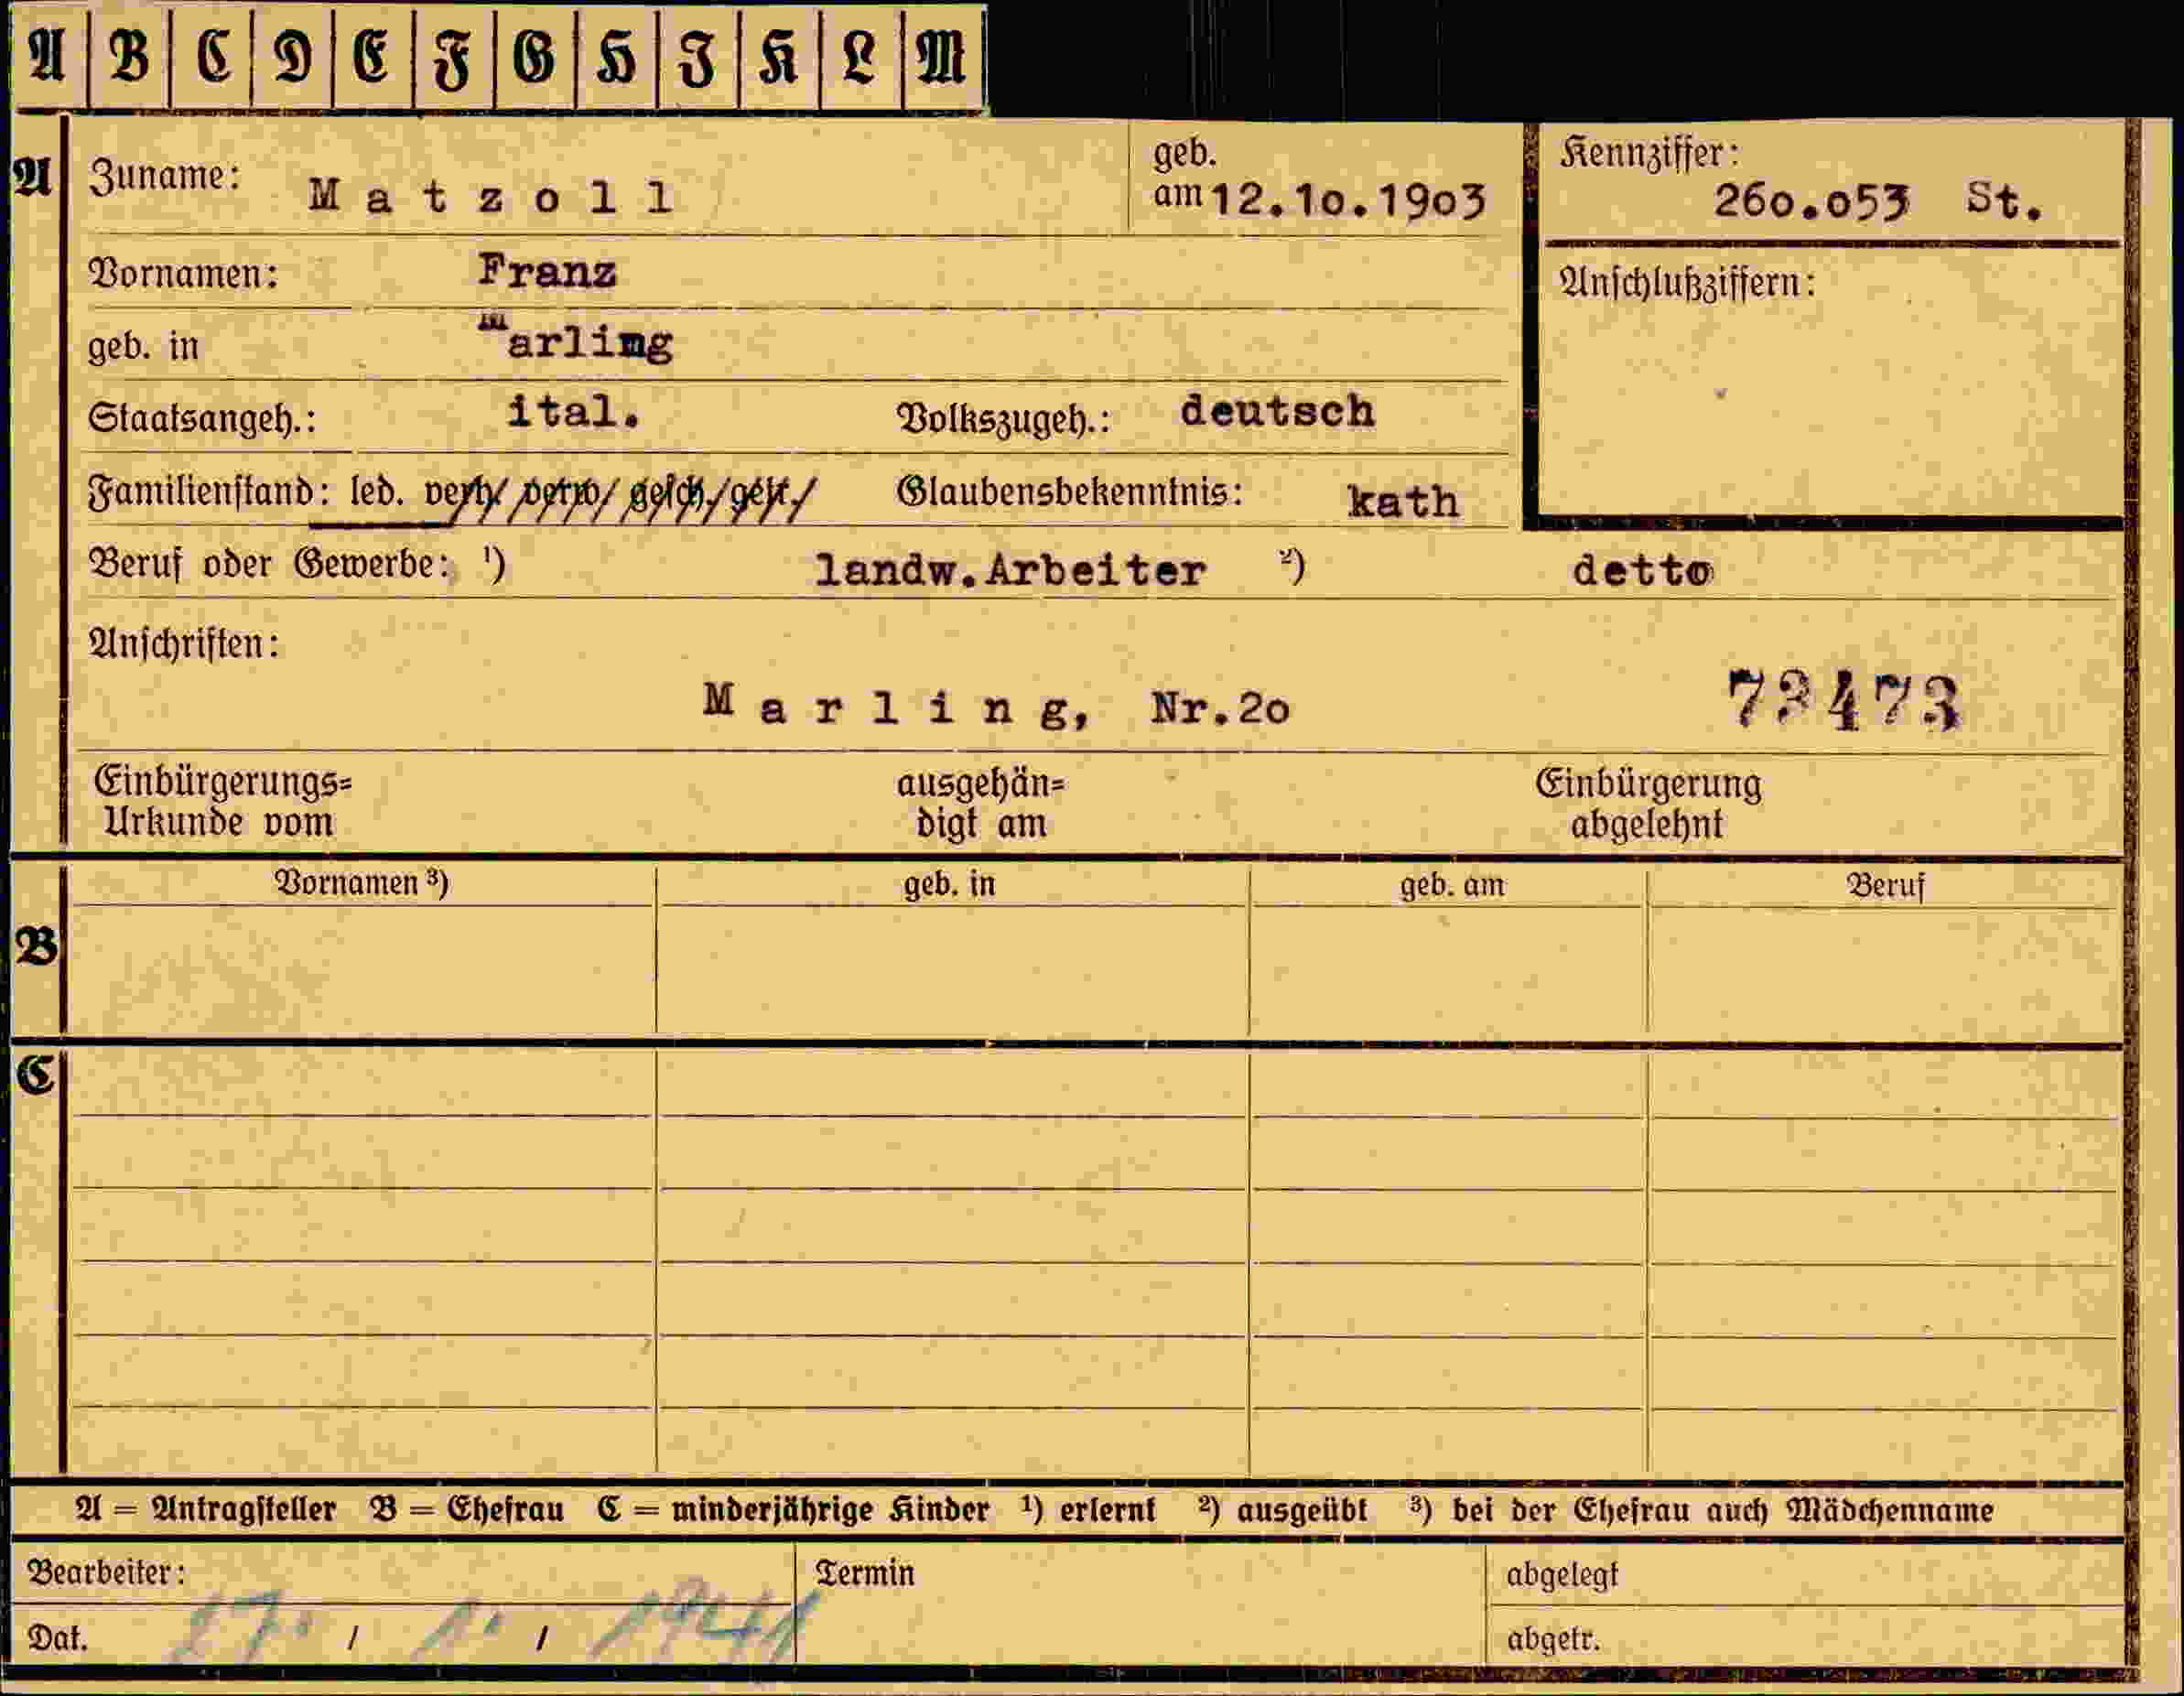 A B C D E F G H I K L M
A
Zuname: Matzoll
geb. am 12.10.1903
Kennziffer: 260.053 St.
Vornamen: Franz
Anschlußziffern:
geb. in Marling
Staatsangeh.: ital. Volkszugeh.: deutsch
Familienstand: led. verh. verw. gesch. getr. Glaubensbekenntnis: kath
Beruf oder Gewerbe: ¹) landw.Arbeiter ²) detto
Anschriften:
Marling, Nr.20 73473
Einbürgerungs= Urkunde vom
ausgehän= digt am
Einbürgerung abgelehnt
B
Vornamen ³) geb. in geb. am Beruf
C
A = Antragsteller B = Ehefrau C = minderjährige Kinder ¹) erlernt ²) ausgeübt ³) bei der Ehefrau auch Mädchenname
Bearbeiter: Termin abgelegt
Dat. 27. / 1. / 1941 abgetr.